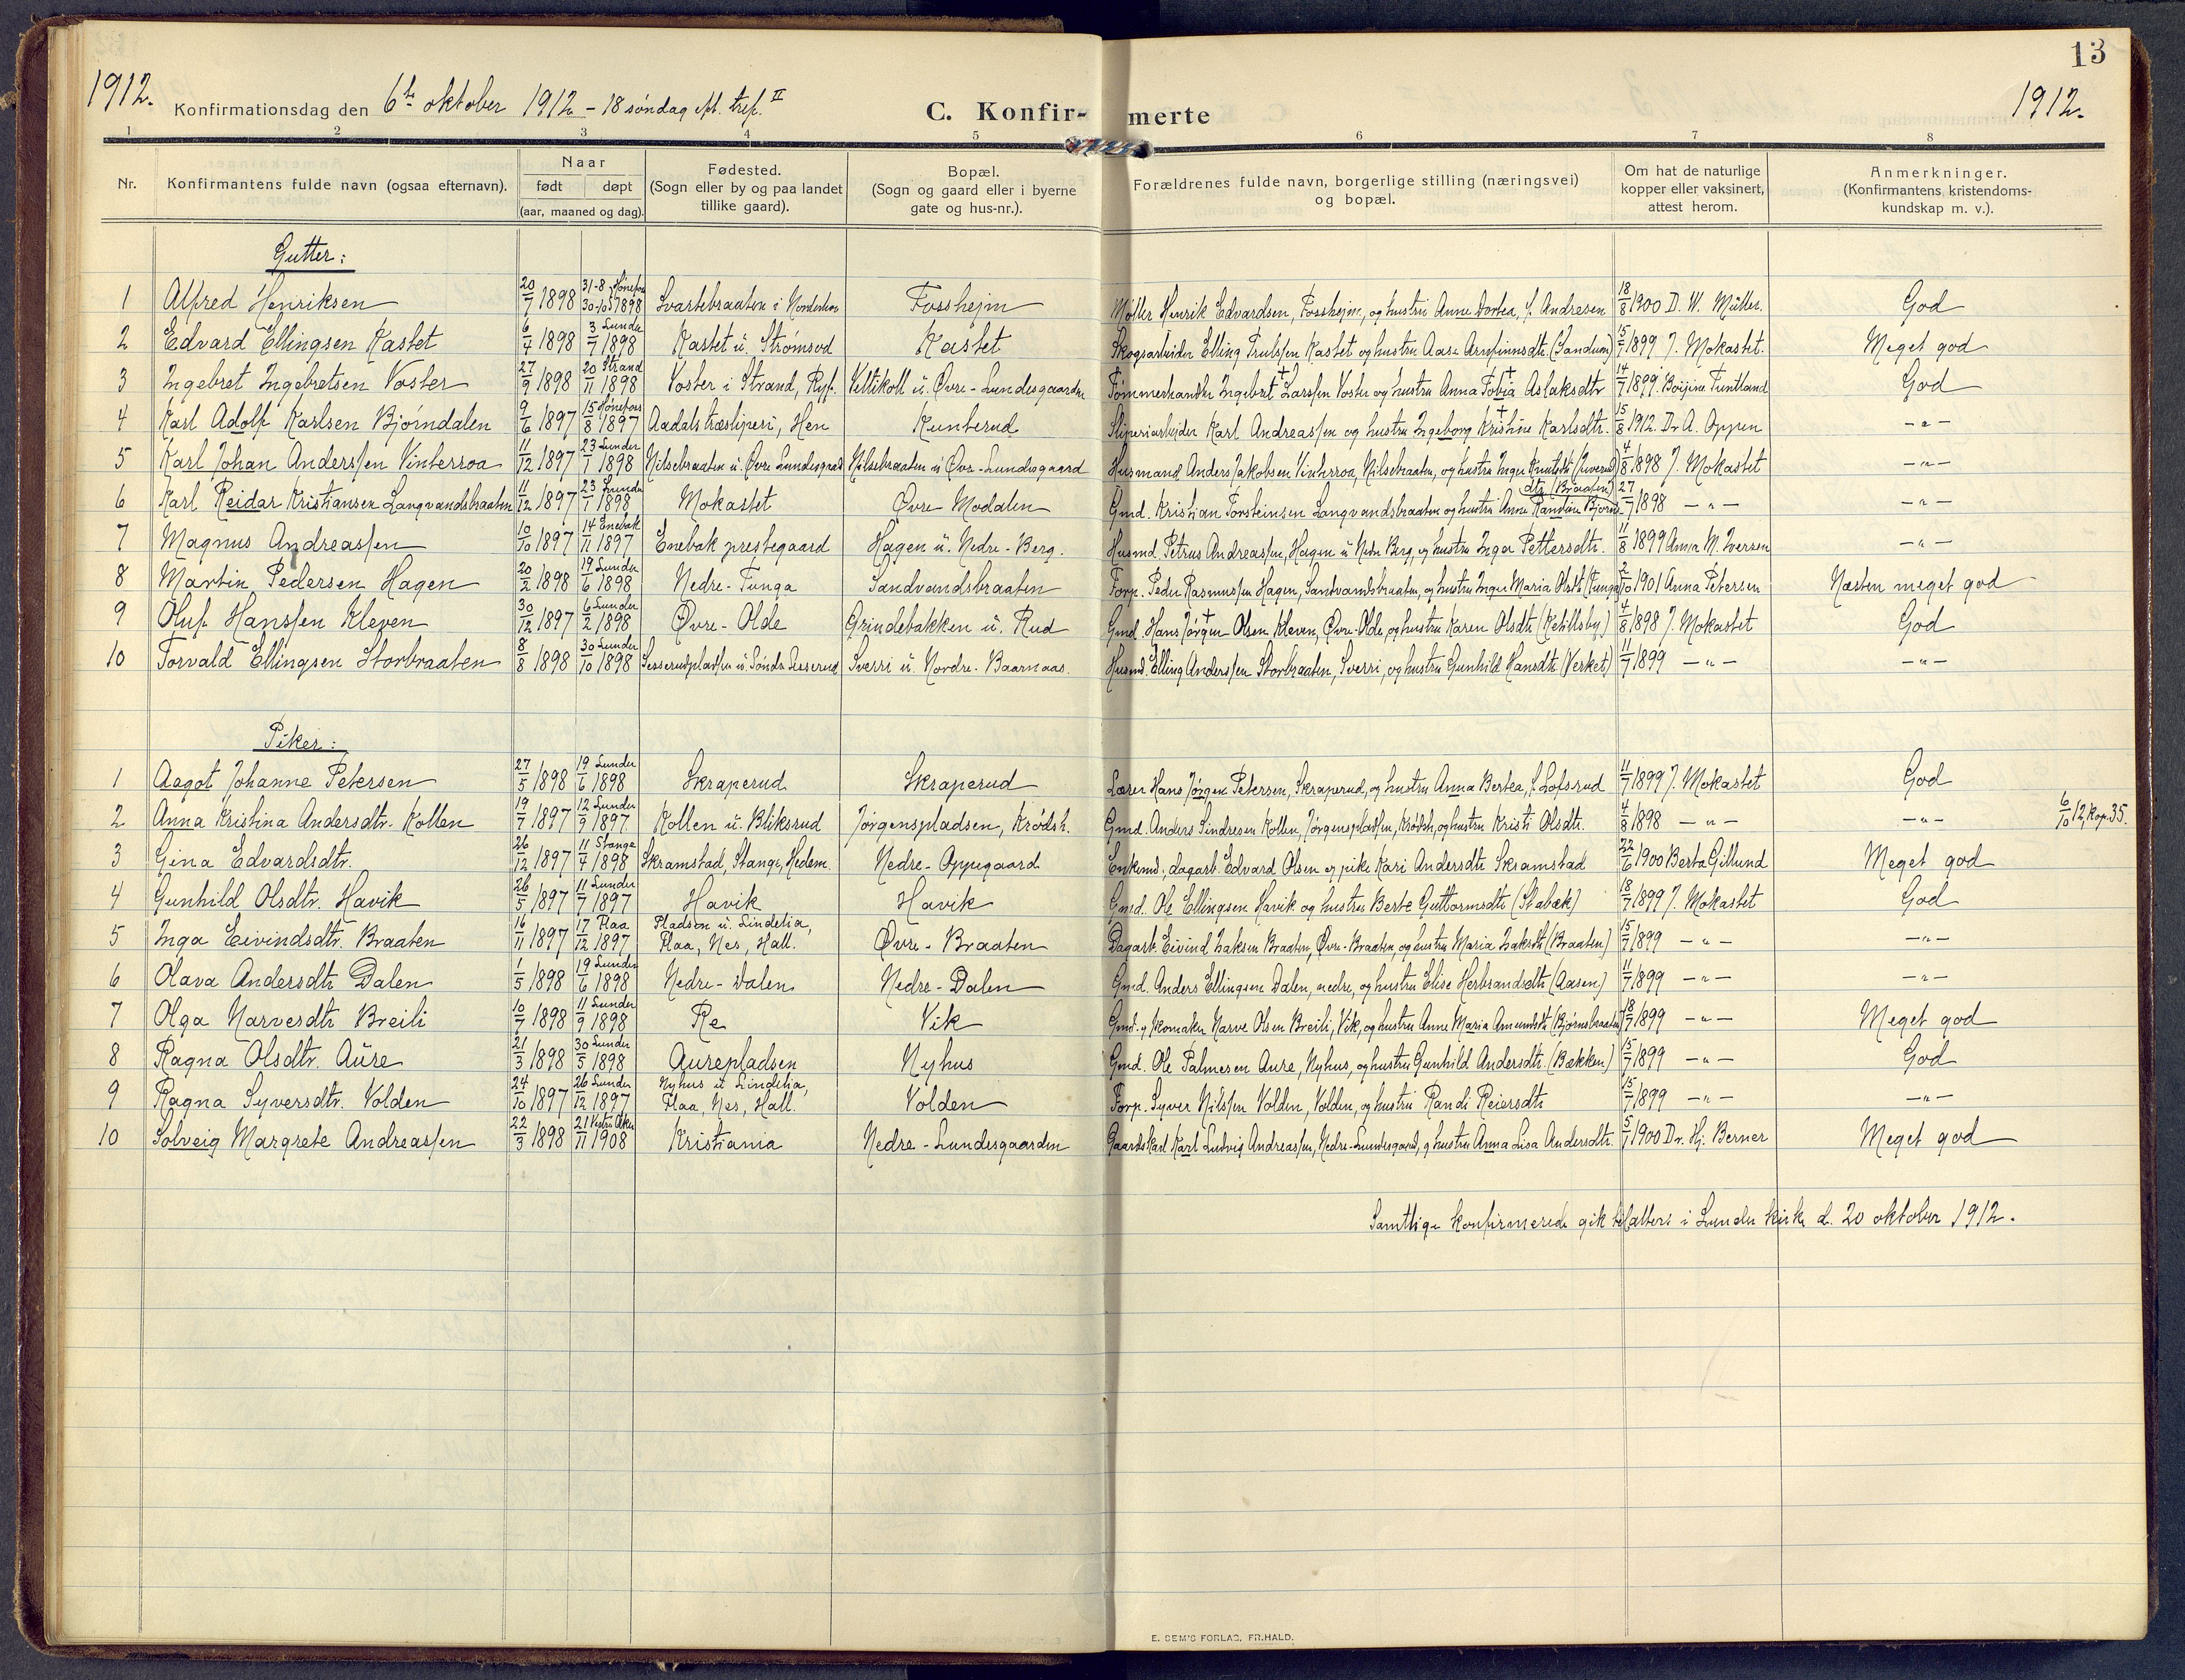 13
1912. Konfirmationsdag den 6te oktober 1912 - 18 søndag eft. tref. II C. Konfir- merte 1912.
1 2 3 4 5 6 7 8
Nr. Konfirmantens fulde navn (ogsaa efternavn). Naar født døpt (aar, maaned og dag). Fødested. (Sogn eller by og paa landet tillike gaard). Bopæl. (Sogn og gaard eller i byerne gate og hus-nr.). Forældrenes fulde navn, borgerlige stilling (næringsvei) og bopæl. Om hat de naturlige kopper eller vaksinert, attest herom. Anmerkninger. (Konfirmantens kristendoms- kundskap m. v.).
Gutter:
1 Alfred Henriksen 20/7 1898 31-8 Hønefos 30-10 1898 Svartebraaten i Norderhov Fossheim Møller Henrik Edvardsen, Fossheim, og hustru Anne Dortea, f. Andresen 18/8 1900 D. W. Müller. God
2 Edvard Ellingsen Kastet 6/4 1898 3/7 Lunder 1898 Kastet u. Strømsod Kastet Skogsarbeider Elling Trulssen Kastet og hustru Aase Arnfinnsdtr. (Sandum) 15/7 1899 J. Mokastet. Meget god
3 Ingebret Ingebretsen Voster 27/9 1898 20/11 Strand 1898 Voster i Strand, Ryf. Veltikoll u. Øvre-Lundesgaarden Tømmerhandler Ingebret † Larssen Voster og hustru Anna Tobia † Aslaksdtr 14/7 1899. Boijine Tuntland God
4 Karl Adolf Karlsen Bjørndalen 9/6 1897 15/8 Hønefos 1897 Aadals træsliperi, Hen Kunterud Sliperiarbeider Karl Andreassen og hustru Ingeborg Kristine † Karlsdtr. 15/8 1912. Dr A. Oppen -„-
5 Karl Johan Anderssen Vinterroa 11/12 1897 23/1 Lunder 1898 Nilsebraaten u. Øvre Lundesgaard Nilsebraaten u. Øvre-Lundesgaard Husmand Anders Jakobsen Vinterroa, Nilsebraaten, og hustru Inger Knutsdtr. 4/8 1898 J. Mokastet -„-
6 Karl Reidar Kristiansen Langvandsbraaten 11/12 1897 23/1 Lunder 1898 Mokastet Øvre Modalen Gmd. Kristian Torsteinsen Langvandsbraaten og hustru Anne Randine Bjørns- dtr (Braaten) 27/7 1898 -„- -„-
7 Magnus Andreassen 10/10 1897 14/11 Enebak 1897 Enebak prestegaard Hagen u. Nedre-Berg. Husmd. Petrus Andreassen, Hagen u. Nedre Berg, og hustru Inga Pettersdtr. 11/8 1899 Anna M. Iversen -„-
8 Martin Pedersen Hagen 20/2 1898 19/6 Lunder 1898 Nedre-Tunga Sandvandsbraaten Forp. Peder Rasmussen Hagen, Sandvandsbraaten, og hustru Inger Maria Olsdtr (Tunga) 2/10 1901 Anna Petersen Næsten meget god
9 Oluf Hanssen Kleven 30/12 1897 6/2 Lunder 1898 Øvre-Olde Grindebakken u. Rud Gmd. Hans Jørgen † Olsen Kleven, Øvre-Olde, og hustru Karen Olsdtr (Ketillsby) 4/8 1898 J. Mokastet God
10 Torvald Ellingsen Storbraaten 8/8 1898 30/10 Lunder 1898 Sesserudpladsen u. Søndre Sesserud Sverri u. Nordre-Baarnaas. Husmd. Elling Anderssen Storbraaten, Sverri, og hustru Gunhild Hansdtr (Verket) 11/7 1899 -„- -„-
Piker:
1 Aagot Johanne Petersen 27/5 1898 19/6 Lunder 1898 Skraperud Skraperud Lærer Hans Jørgen Petersen, Skraperud, og hustru Anna Bertea, f. Lofsrud 11/7 1899 J. Mokastet God
2 Anna Kristina Andersdtr. Kollen 19/7 1897 12/9 Lunder 1897 Kollen u. Bliksrud Jørgenspladsen, Krødsh. Gmd. Anders Sindresen Kollen, Jørgenspladsen, Krødsh, og hustru Kristi Olsdtr. 4/8 1898 -„- -„- 6/10 12, Kop. 35.
3 Gina Edvardsdtr. 26/12 1897 11/4 Stange 1898 Skramstad, Stange, Hedem. Nedre-Oppegaard Enkemd., dagarb. Edvard Olsen og pike Kari Andersdtr Skramstad 22/6 1900 Berta Gillund Meget god
4 Gunhild Olsdtr. Havik 26/5 1897 11/7 Lunder 1897 Havik Havik Gmd. Ole Ellingsen Havik og hustru Berte Guttormsdtr (Stabæk) 18/7 1899 J. Mokastet God
5 Inga Eivindsdtr. Braaten 16/11 1897 17/12 Flaa 1897 Pladsen u. Lindelia, Flaa, Nes, Hall. Øvre-Braaten Dagarb. Eivind Isaksen Braaten, Øvre-Braaten, og hustru Maria Isaksdtr (Braaten) 15/7 1899 -„- -„-
6 Olava Andersdtr Dalen 1/5 1898 19/6 Lunder 1898 Nedre-Dalen Nedre-Dalen Gmd. Anders Ellingsen Dalen, nedre, og hustru Elise Herbrandsdtr (Aasen) 11/7 1899 -„- -„-
7 Olga Narvesdtr Breili 10/7 1898 11/9 Lunder 1898 Re Vik Gmd. og skomaker Narve Olsen Breili, Vik, og hustru Anne Maria Amundsdtr (Bjørnebraaten) 18/7 1899 -„- Meget god
8 Ragna Olsdtr. Aure 21/3 1898 30/5 Lunder 1898 Aurepladsen Nyhus Gmd. Ole Palmesen Aure, Nyhus, og hustru Gunhild Andersdtr. (Bækken) 15/7 1899 -„- God
9 Ragna Syversdtr. Volden 24/10 1897 26/12 Lunder 1897 Nyhus u. Lindelia, Flaa, Nes, Hall. Volden Forp. Syver Nilssen Volden, Volden, og hustru Randi Reiersdtr 15/7 1899 -„- -„-
10 Solveig Margrete Andreassen 22/3 1898 21/11 Vestre Aker 1908 Kristiania Nedre-Lundesgaarden Gaardskarl Karl Ludvig Andreassen, Nedre-Lundesgaard, og hustru Anna Lisa Andersdtr. 5/7 1900 Dr. Hj. Berner Meget god
Samtlige konfirmerede gik til alters i Lunder kirke d. 20 oktober 1912.
E. SEM'S FORLAG, FR.HALD.